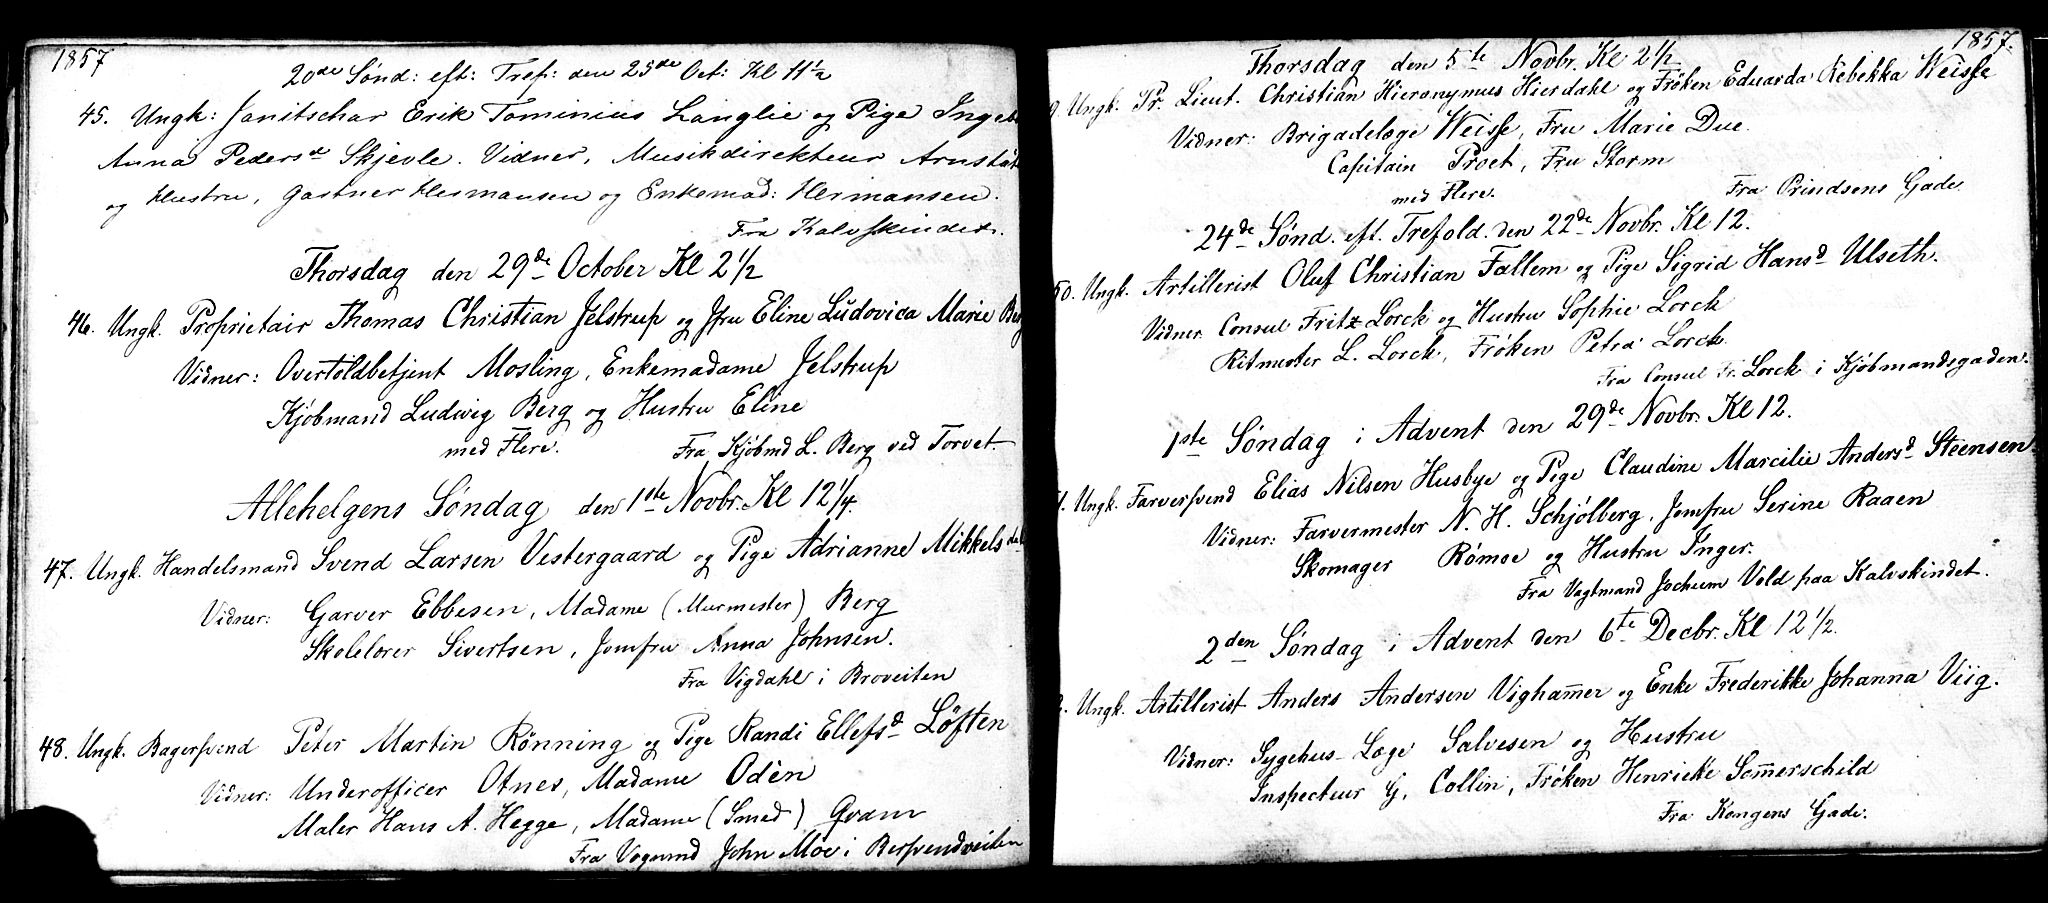 1857
20de Sønd: eft: Tref: den 25de Oct: Kl 11½
45. Ungk: Janitschar Erik Tominius Langlie og Pige Ingeb
Anna Pedersd Skjevle. Vidner, Musikdirekteur Arnstät
og Hustru, Gartner Hermansen og Enkemad: Hermansen.
Fra Kalvskindet.
Thorsdag den 29de October Kl 2½
46. Ungk. Proprietair Thomas Christian Jelstrup og Jfru Eline Ludovica Marie Berg
Vidner: Overtoldbetjent Mosling, Enkemadame Jelstrup
Kjøbmand Ludwig Berg og Hustru Eline
med Flere. Fra Kjøbmd L. Berg ved Torvet.
Allehelgens Søndag den 1ste Novbr. Kl 12¼.
47. Ungk. Handelsmand Svend Larsen Vestergaard og Pige Adrianne Mikkelsdat
Vidner: Garver Ebbesen, Madame (Murmester) Berg
Skolelærer Sivertsen, Jomfru Anna Johnsen.
Fra Vigdahl i Broveiten
48. Ungk. Bagersvend Peter Martin Rønning og Pige Randi Ellefsd Løften
Vidner: Underofficer Otnes, Madame Odèn
Maler Hans A. Hegge, Madame (Smed) Qvam
Fra Vognmd John Moe i Bersvendveiten
1857.
Thorsdag den 5te Novbr. Kl 2½
9. Ungk. Pr. Lieut. Christian Hieronymus Hierdahl og Frøken Eduarda Rebekka Weisse
Vidner: Brigadelæge Weisse, Fru Marie Due.
Capitain Proet, Fru Storm
med Flere. Fra Prindsens Gade
24de Sønd. eft. Trefold. den 22de Novbr. Kl 12.
50. Ungk. Artillerist Oluf Christian Fallem og Pige Sigrid Hansd Ulseth.
Vidner Consul Fritz Lorck og Hustru Sophie Lorck
Ritmester L. Lorck, Frøken Petra Lorck
Fra Consul Fr. Lorck i Kjøbmandsgaden.
1ste Søndag i Advent den 29de Novbr. Kl 12.
1. Ungk. Farversvend Elias Nilsen Husbye og Pige Claudine Marcilie Andersd Steensen.
Vidner: Farvermester N. H. Schjølberg, Jomfru Serine Raaen
Skomager Rømoe og Hustru Inger.
Fra Vagtmand Jochum Vold paa Kalvskindet.
2den Søndag i Advent den 6te Decbr. Kl 12½.
2. Ungk. Artillerist Anders Andersen Vigham̄er og Enke Frederikke Johanna Viig.
Vidner: Sygehus-Læge Salvesen og Hustru
Inspecteur G. Collin, Frøken Henrieke Som̄erschild
Fra Kongens Gade.